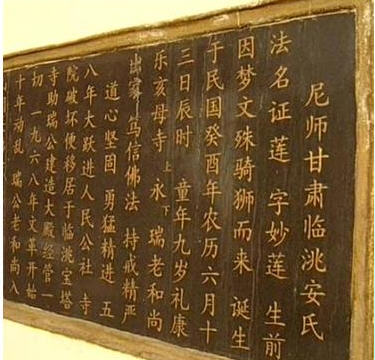 尼师甘肃临洮安氏
法名证莲 字妙莲 生前
因梦文殊骑狮而来 诞生
于民国癸酉年农历六月十
三日辰时 童年九岁礼康
乐亥母寺 上永下瑞老和尚
出家 笃信佛法 持戒精严
道心坚固 勇猛精进 五
八年大跃进人民公社 寺
院破坏便移居于临洮宝塔
寺助瑞公建造大殿经营一
切 一九六八年文革开始
十年动乱 瑞公老和尚入